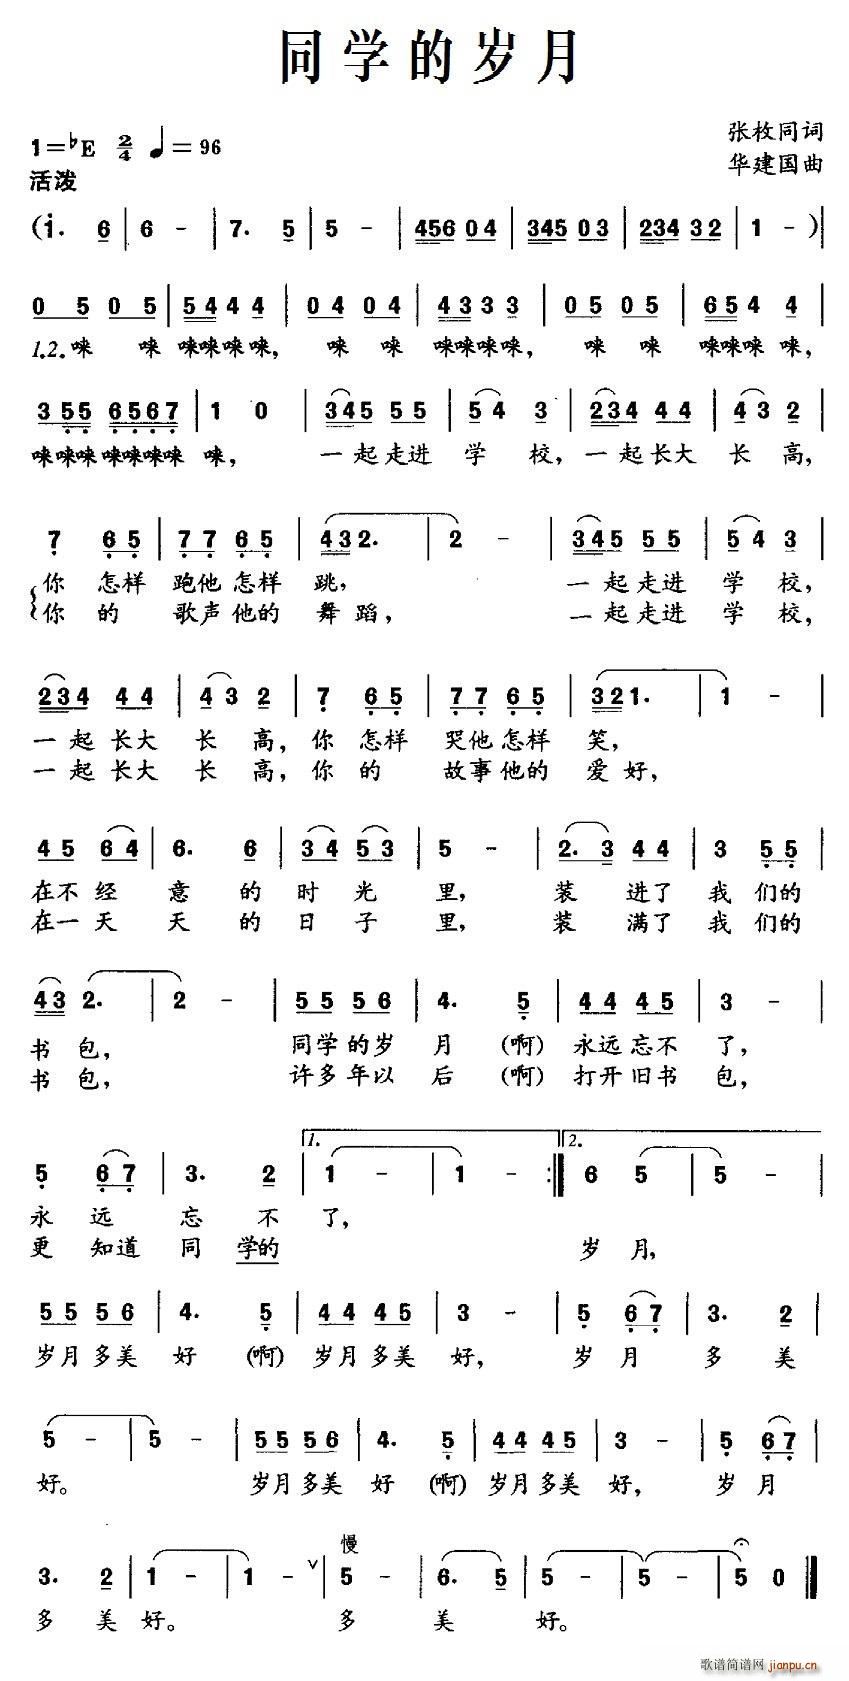 同学的岁月
1=♭E 2/4 ♩=96
张枚同词
华建国曲
活泼
(i. 6 | 6 - | 7. 5 | 5 - | 456 04 | 345 03 | 234 32 | 1 - )|
0 5 0 5 | 5 4 4 4 | 0 4 0 4 | 4 3 3 3 | 0 5 0 5 | 6 5 4 4 |
1.2.唻 唻 唻唻唻唻, 唻 唻 唻唻唻唻, 唻 唻 唻唻唻 唻,
3 5 5 6 5 6 7 | 1 0 | 345 55 | 54 3 | 234 44 | 43 2 |
唻唻唻 唻唻唻唻 唻, 一起走进 学 校, 一起长大 长 高,
7 65 | 77 65 | 432. | 2 - | 345 55 | 54 3 |
你 怎样 跑他怎样 跳, 一起走进 学 校,
你 的 歌声他的 舞蹈, 一起走进 学 校,
234 44 | 43 2 | 7 65 | 77 65 | 321. | 1 - |
一起长大 长 高, 你 怎样 哭他怎样 笑,
一起长大 长 高, 你 的 故事他的 爱好,
45 64 | 6. 6 | 34 53 | 5 - | 2.3 44 | 3 55 |
在不 经 意 的 时 光 里, 装 进了 我 们的
在一 天 天 的 日 子 里, 装 满了 我 们的
43 2. | 2 - | 55 56 | 4. 5 | 44 45 | 3 - |
书 包, 同学的岁 月 (啊) 永远忘不 了,
书 包, 许多年以 后 (啊) 打开旧书 包,
5 67 | 3. 2 | 1. 1 - | 1 - :| 2. 6 5 | 5 - |
永 远 忘 不 了,
更 知道 同 学的 岁 月,
55 56 | 4. 5 | 44 45 | 3 - | 5 67 | 3. 2 |
岁月多美 好 (啊) 岁月多美 好, 岁 月 多 美
5 - | 5 - | 55 56 | 4. 5 | 44 45 | 3 - | 5 67 |
好。 岁月多美 好 (啊) 岁月多美 好, 岁 月
慢
3. 2 | 1 - | 1 - ∨ | 5 - | 6. 5 | 5 - | 5 - | 5 0 ‖
多 美 好。 多 美 好。
歌谱简谱网 jianpu.cn